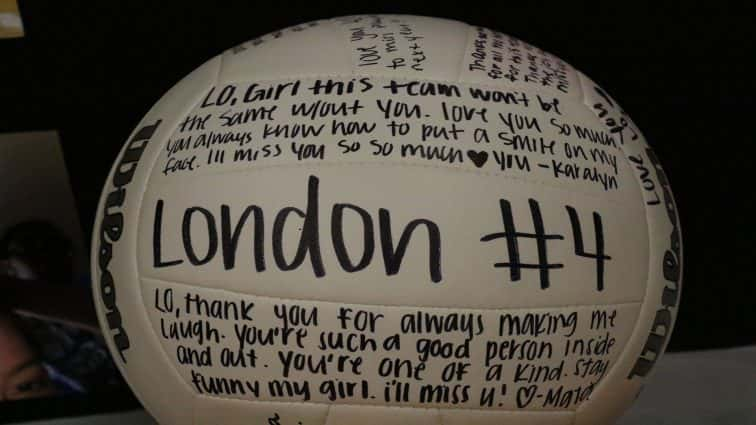 love you
to min
next year
Thank
for all
for this
LO, Girl this team won't be
the same w/out you. love you so much
you always know how to put a smile on my
face. I'll miss you so so much ♥ you - Karalyn
LOVE
Wilson
Wilson
London #4
LO, thank you for always making me
laugh. you're such a good person inside
and out. you're one of a kind. stay
funny my girl. i'll miss u! ♡-